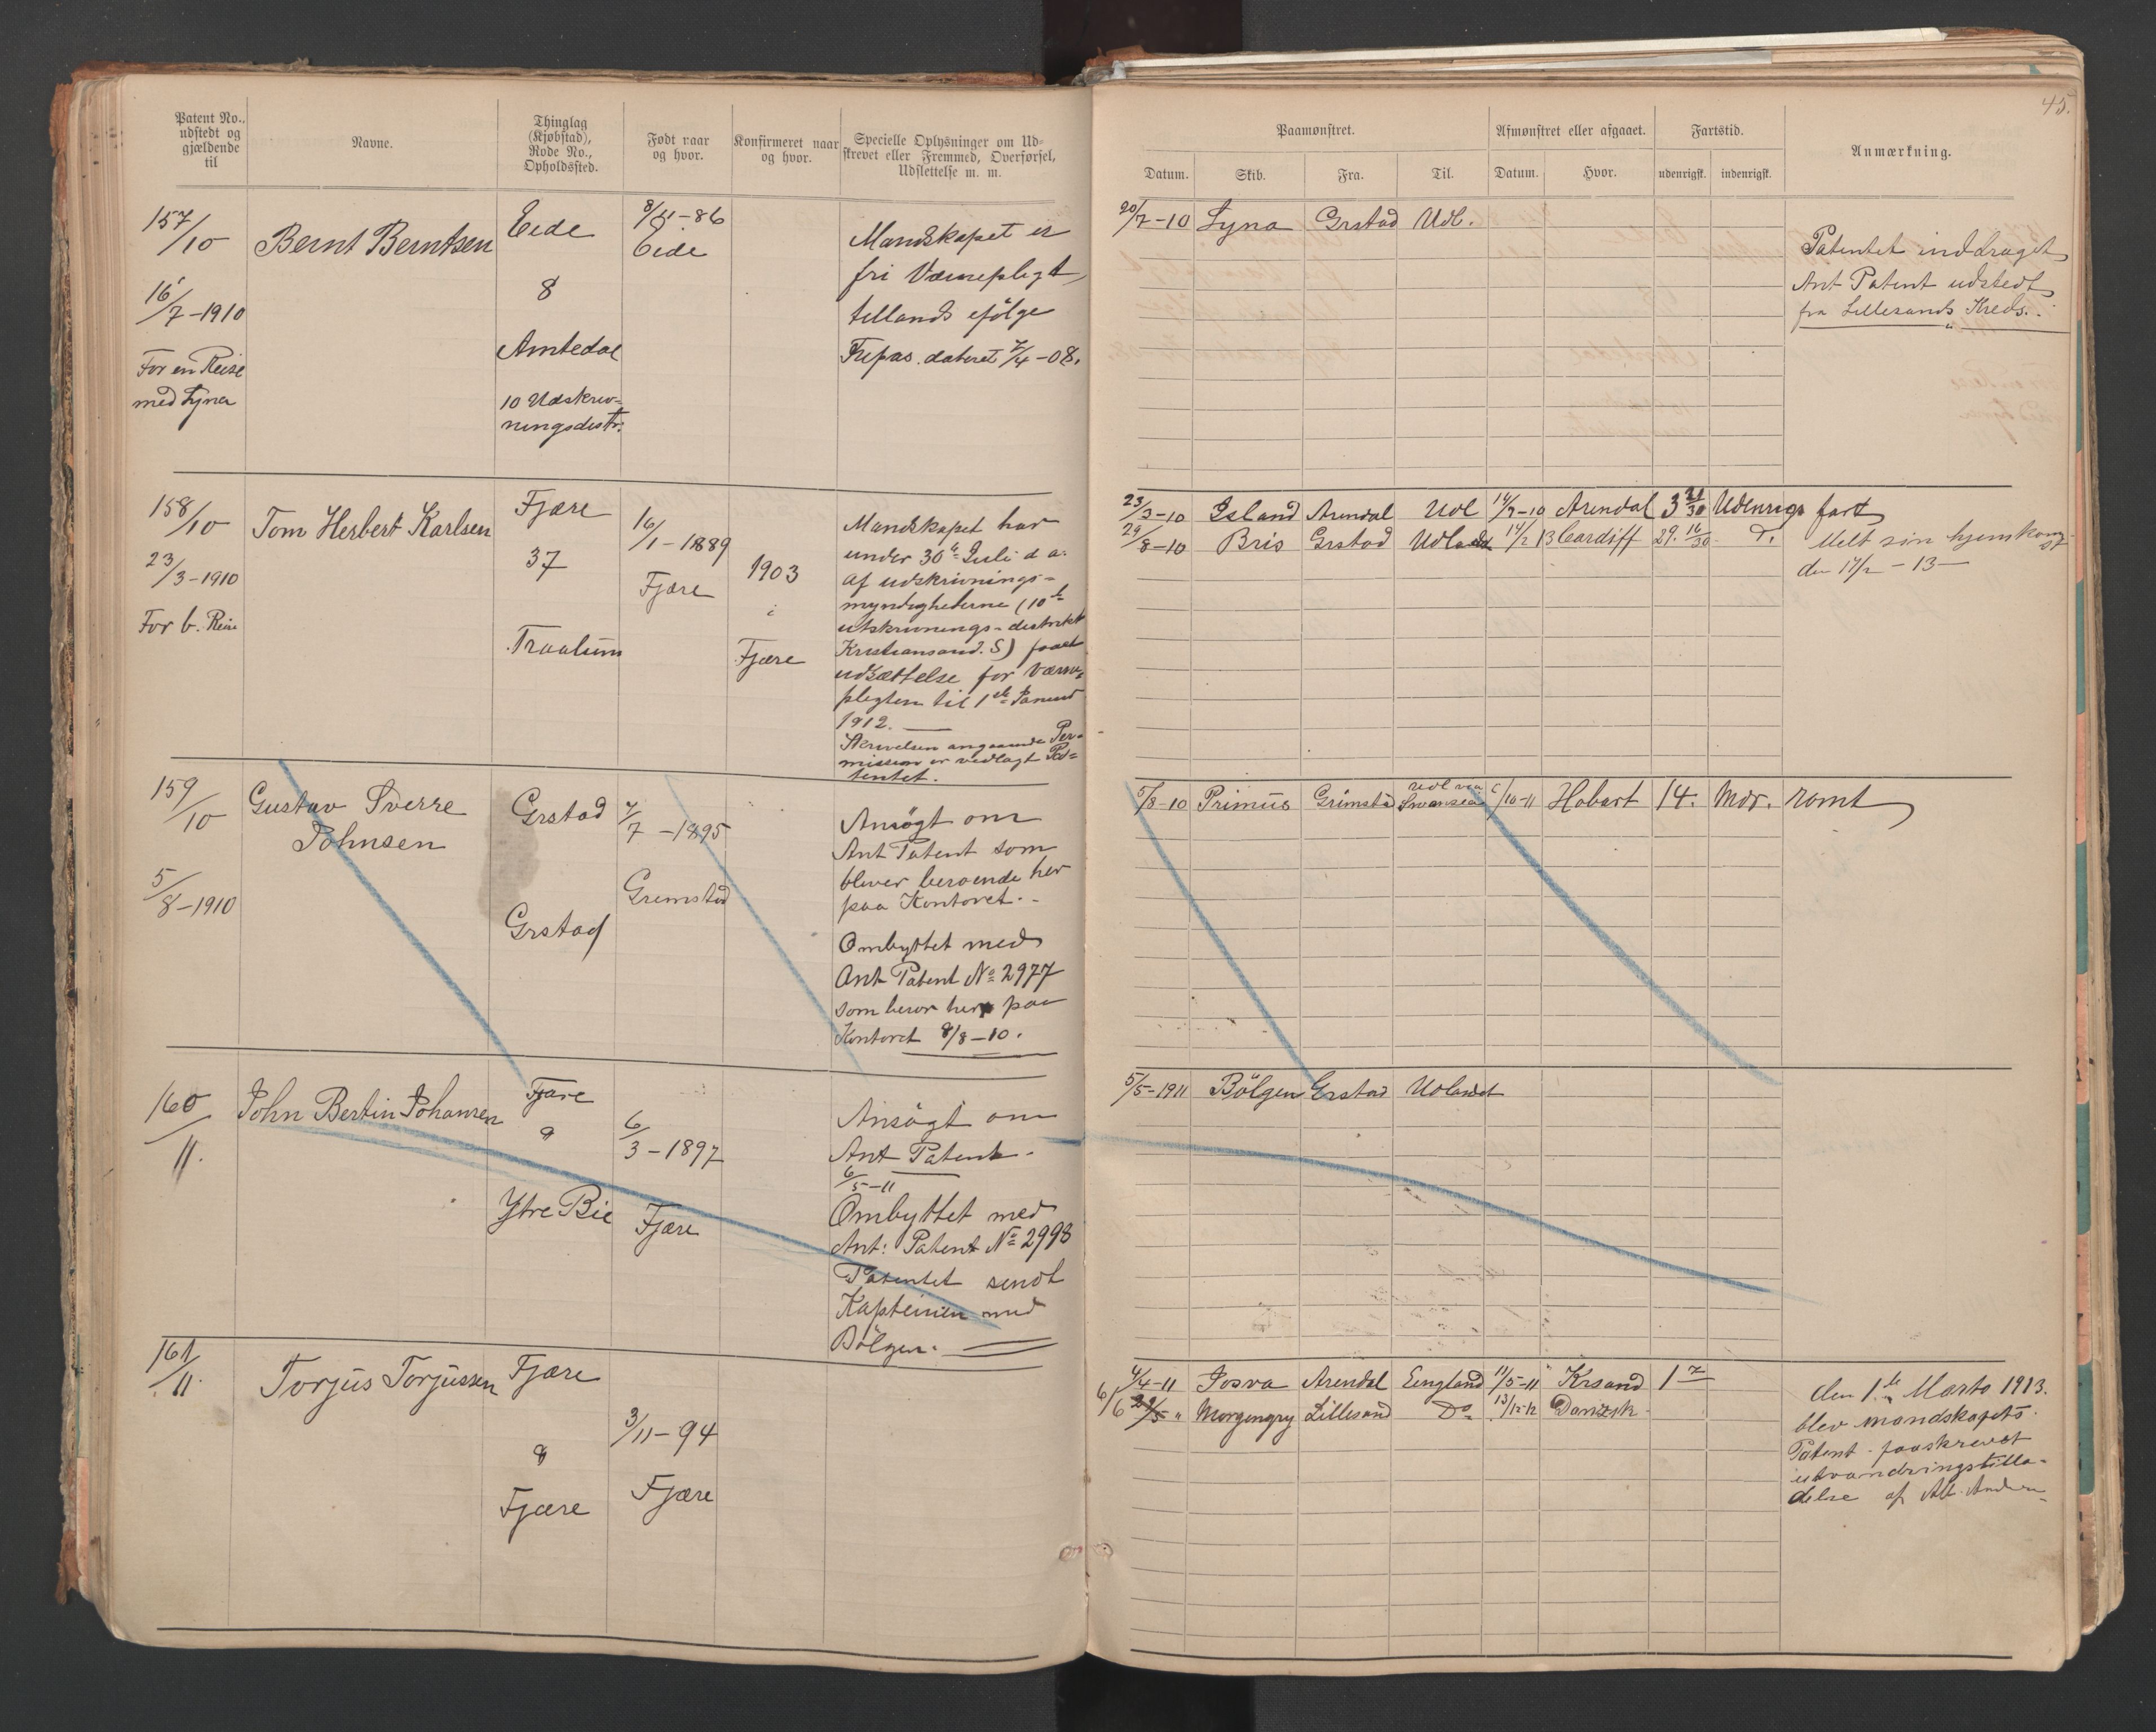 45.
Patent No.,
udstedt og
gjældende
til
Navne.
Thinglag
(Kjøbstad),
Rode No.,
Opholdssted.
Født naar
og hvor.
Konfirmeret naar
og hvor.
Specielle Oplysninger om Ud-
skrevet eller Fremmed, Overførsel,
Udslettelse m. m.
Paamønstret.
Afmønstret eller afgaaet.
Fartstid.
Anmærkning.
Datum.
Skib.
Fra.
Til.
Datum.
Hvor.
udenrigsk.
indenrigsk.
157/10
16/7-1910
For en Reise
med Lyna
Bernt Berntsen
Eide
8
Amtedal
10 Udskriv-
ningsdistr.
8/11-86
Eide
Mandskapet er
fri Værnepligt
tillands ifölge
Fripas. dateret 7/4-08.
20/7-10 Lyna Grstad Udl.
Patentet inddraget
Ant Patent udstedt
fra Lillesands Kreds.
158/10
23/3-1910
For b. Reise
Tom Herbert Karlsen
Fjære
37
Traalum
16/1-1889
Fjære
1903
i
Fjære
Mandskapet har
under 30te Juli d a:
af udskrivnings-
myndighederne (10de
utskrivnings-distrikt
Kristiansand. S) faaet
udsættelse for Værne-
pligten til 1ste Januar
1912.
Skrivelsen angaaende Per-
mission er vedlagt Pa-
tentet.
23/3-10 Island Arendal Udl 14/7-10 Arendal 3 21/30 Udenrigs fart
29/8-10 Bris Grstad Udlandet 14/2 13 Cardiff 29. 16/30 D.
Meldt sin hjemkomst
den 17/2 - 13
159/10
5/8-1910
Gustav Sverre
Johnsen
Grstad
Grstad
7/7-1895
Grimstad
Ansögt om
Ant Patent som
bliver beroende her
paa Kontoret.
Ombyttet med
Ant Patent No 2977
som beror her paa
Kontoret 8/8-10.
5/8-10 Primus Grimstad Udl via Swansea /10-11 Hobart 14. Mdr. rømt
160/11.
John Bertin Johansen
Fjære
a
Ytre Bie
6/3-1897
Fjære
Ansögt om
Ant Patent.
6/5-11
Ombyttet med
Ant: Patent No 2998
Patentet sendt
Kapteinen med
Bölgen.
5/5-1911 Bölgen Grstad Udlandet
161/11.
Torjus Torjussen
Fjære
a
Fjære
3/11-94
Fjære
4/4-11 Josva Arendal Eengland 11/5-11 Krsand 1 7
6/6 Morgengry Lillesand Do 13/12-12 Danzsk
Den 1ste Marts 1913.
blev mandskapets
Patent paaskrevet
utvandringstilla-
delse af Alb. Andersen